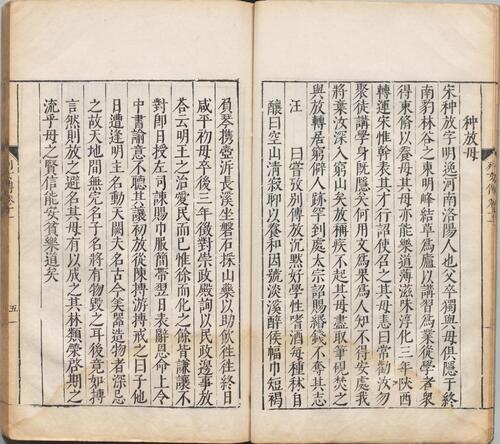 种放母
宋种放字明逸河南洛陽人也父卒獨與母俱隱于終
南豹林谷之東明峰結草爲廬以講習爲業從學者衆
得束脩以養母其母亦能樂道薄滋味淳化三年陝西
轉運宋惟幹表其才行詔使召之其母恚曰常勸汝勿
聚徒講學身既隱矣何用文爲果爲人知不得安處我
將棄汝深入窮山矣放稱疾不起其母盡取筆硯焚之
與放轉居窮僻人跡罕到處太宗詔賜緡錢不奪其志
汪　曰嘗攷別傳放沉黙好學性嗜酒每種秫自
釀曰空山清寂聊以養和因號淡溪醉侯幅巾短褐
負琴攜壺泝長溪坐磐石採山藥以助飲往往終日
咸平初母卒後三年徵對崇政殿詢以民政邊事放
荅云明王之治愛民而已惟徐而化之餘皆謙讓不
對即日授左司諫賜巾服簡帶翌日表辭恩命上令
中書諭意不聽其讓初放從陳摶游摶戒之曰子他
日遭逢明主名動天闕夫名古今美器造物者深忌
之故天地間無完名子名將有物毀之耳後竟如摶
言然則放之避名其母有以成之其林類榮啓期之
流乎母之賢信能安貧樂道矣
五